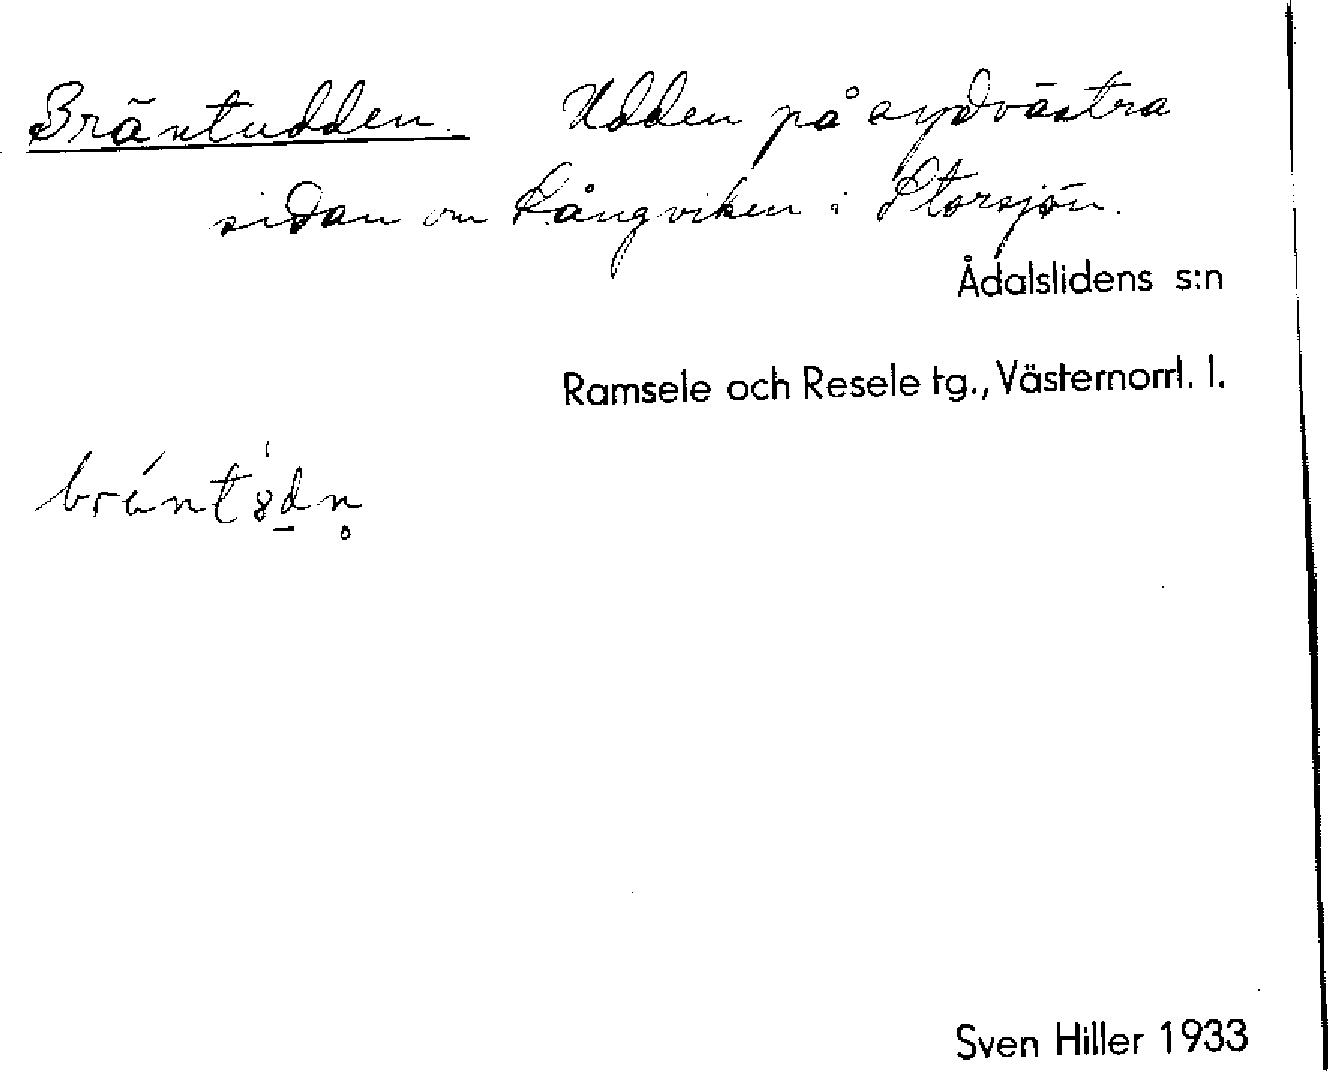 Bräntudden. Udden på sydvästra
sidan om Långviken i Storsjön.
Ådalslidens s:n
Ramsele och Resele tg., Västernorrl. l.
Sven Hiller 1933